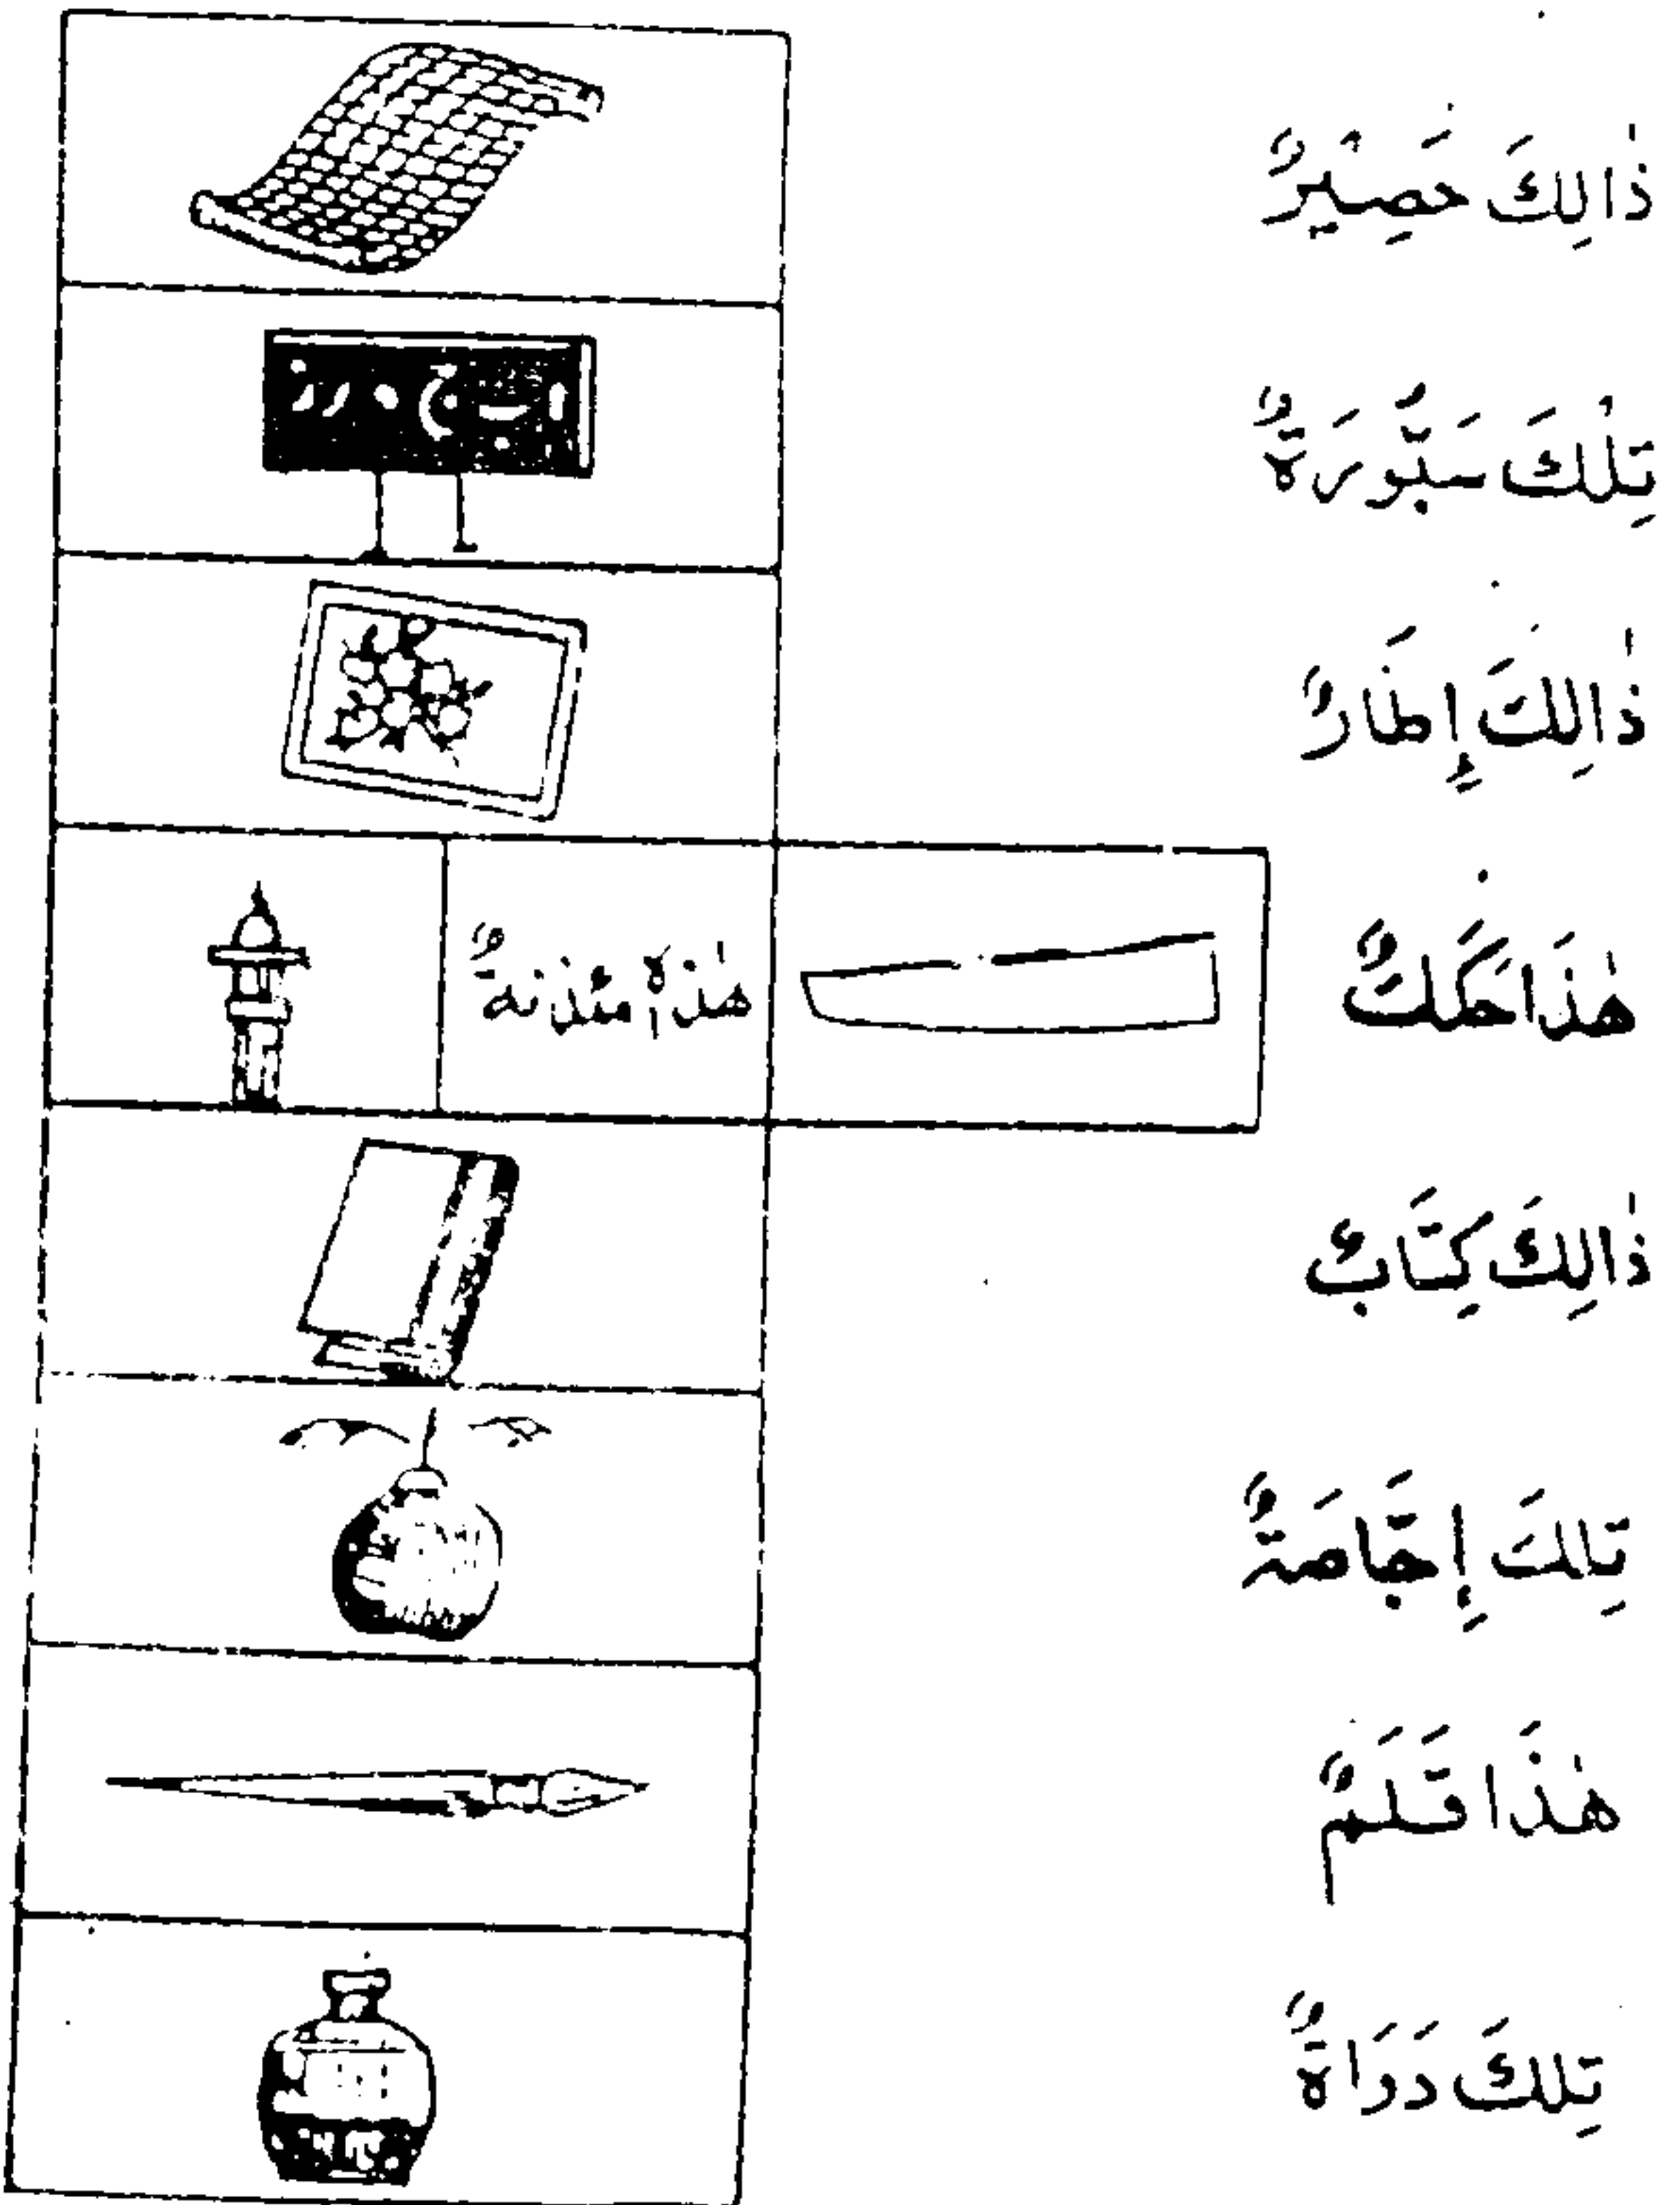 ذَالِكَ حَصِيْرٌ
تِلْكَ سَبُّورَةٌ
ذَالِكَ إِطَارٌ
هٰذَا
هٰذِهِ مِئْذَنَةٌ
ذَالِكَ كِتَابٌ
تِلكَ إِجَّاصَةٌ
هٰذَا قَلَمٌ
تِلكَ دَوَاةٌ